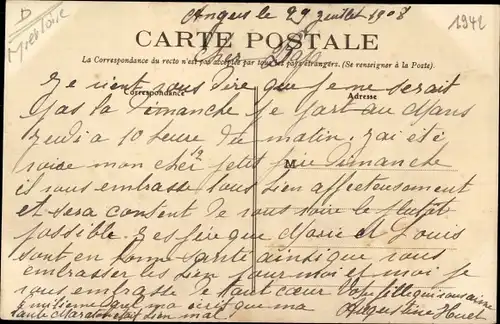 Angers le 29 juillet 1908
1942
D
M et Loire
CARTE POSTALE
Cher Papa
La Correspondance du recto n'est pas acceptée par tous les pays étrangers. (Se renseigner à la Poste).
Je vient vous dire que je ne serait
Correspondance
Adresse
pas la Dimanche je part au Mans
Jeudi a 10 heure du matin. J'ai été
voire mon cher petit frère Dimanche
M
il vous embrasse tous bien affectueusement
et sera content de vous voire le plutôt
possible. J'espère que Marie et Louis
sont en bonne santé ainsi que vous
embrasser les bien pour moi et moi je
vous embrasse de tout cœur Votre fille qui vous aime
Augustine Huet
que ma
tante